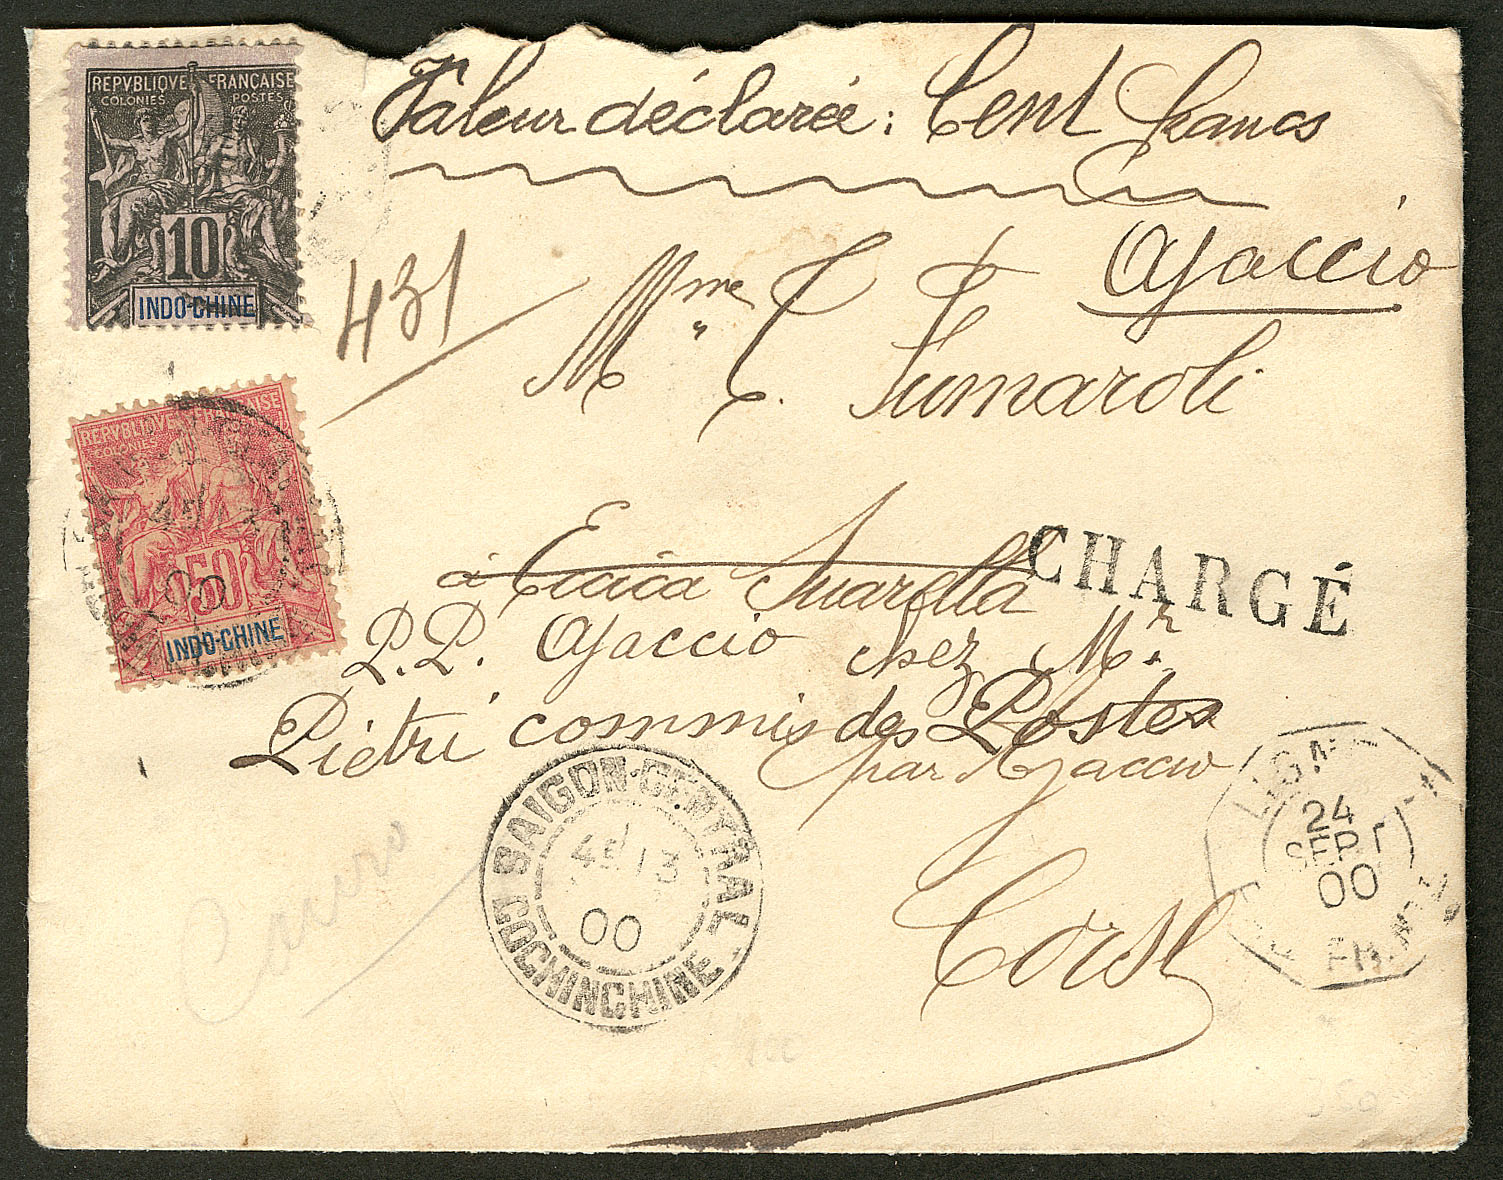 REPVBLIQVE FRANÇAISE
COLONIES POSTES
10
INDO-CHINE
Valeur déclarée : Cent francs
Ajaccio
431
Mme T. Fumaroli
REPVBLIQVE FRANÇAISE
COLONIES
50
INDO-CHINE
00
à Cuarella
CHARGÉ
P.P. Ajaccio chez Mr
Piétri commis des Postes
par Ajaccio
Corse
SAIGON-CENTRAL
13
00
COCHINCHINE
LIGNE
24
SEPT
00